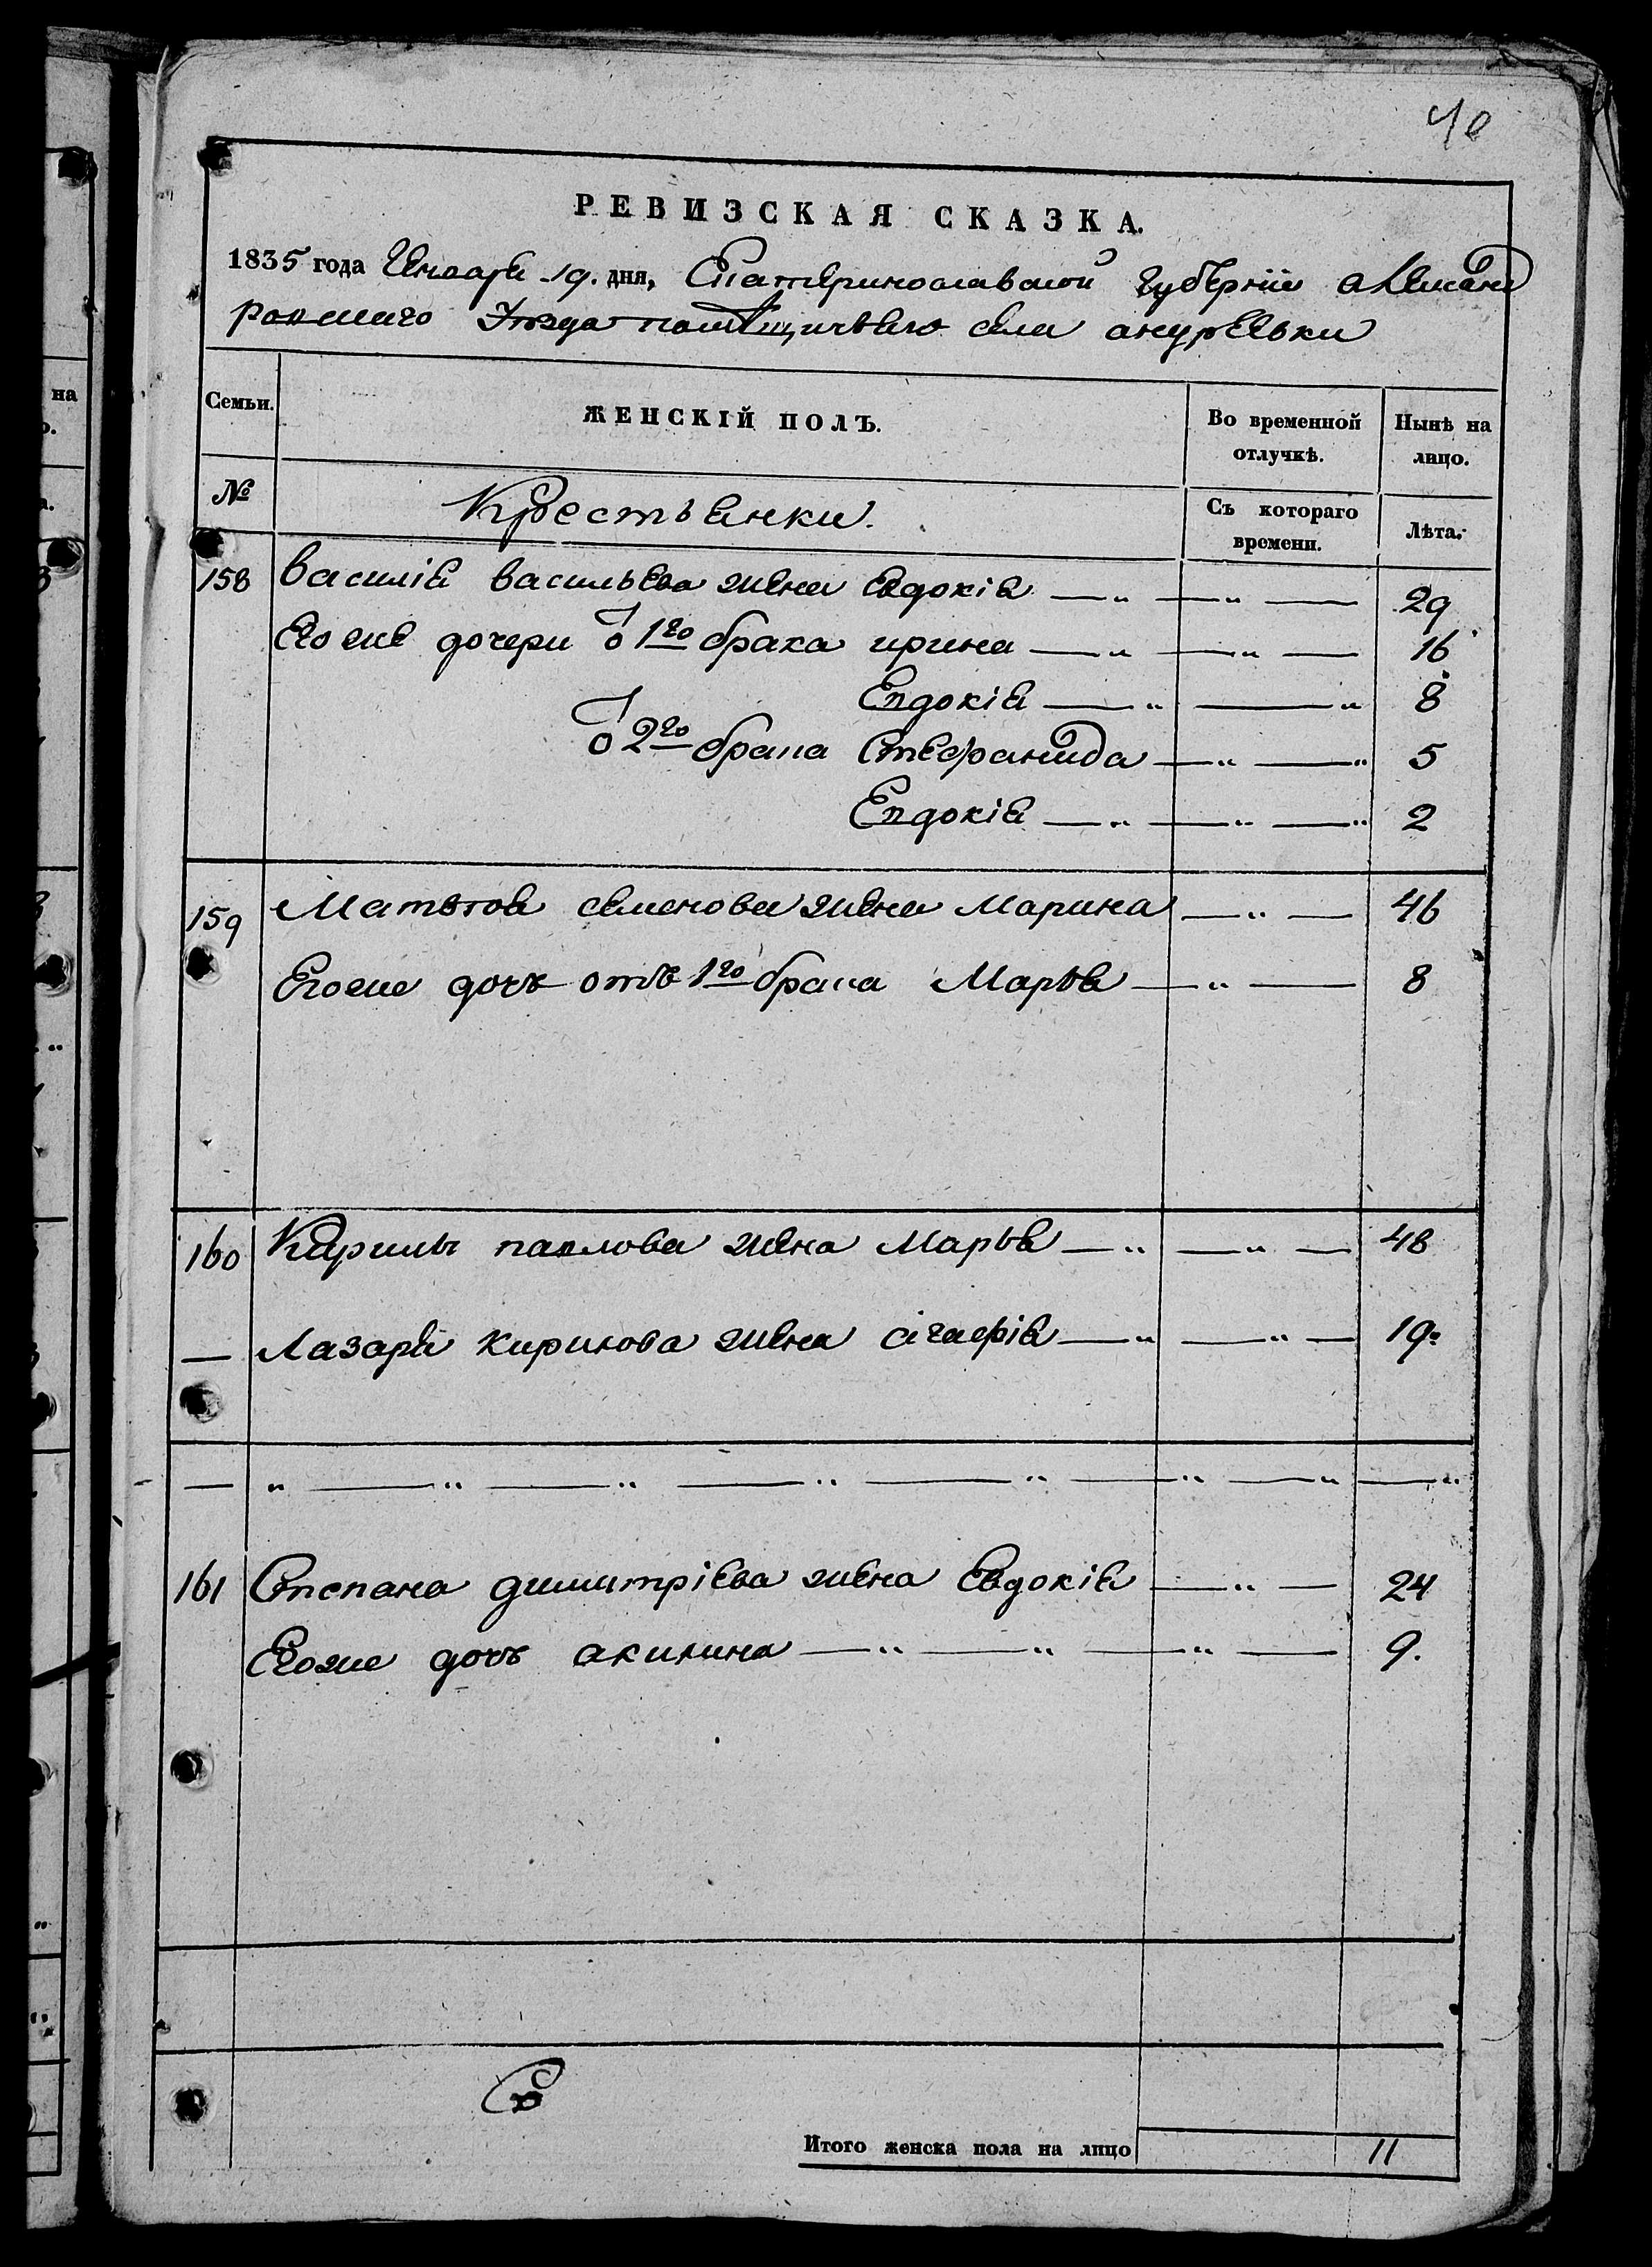 40
РЕВИЗСКАЯ СКАЗКА.
1835 года Генваря 19. дня, Екатеринославской губернии александ
ровскаго Уѣзда помѣщичьего села
Семьи.
ЖЕНСКІЙ ПОЛЪ.
Во временной отлучкѣ.
Нынѣ на лицо.
№
Крестьянки.
Съ котораго времени.
Лѣта.
158 Василія васильева жена Евдокія — „ — „ — 29
Его же дочери о͡т 1го брака ирина — „ — „ — 16
Евдокія — „ — „ 8
о͡т 2го брака Стефанида — „ — „ 5
Евдокія — „ — „ — „ 2
159 Матвея семенова жена Марина — „ — 46
Егоже дочь отъ 1го брака Марья — „ — 8
160 Кирилы павлова жена Марья — „ — „ — 48
— Лазаря кирилова жена агафія — „ — „ — 19
— „ — „ — „ — „ — „ — „ — „ — „
161 Степана димитріева жена Евдокія — „ — 24
Егоже дочь акилина — „ — „ — „ — 9.
Итого женска пола на лицо 11